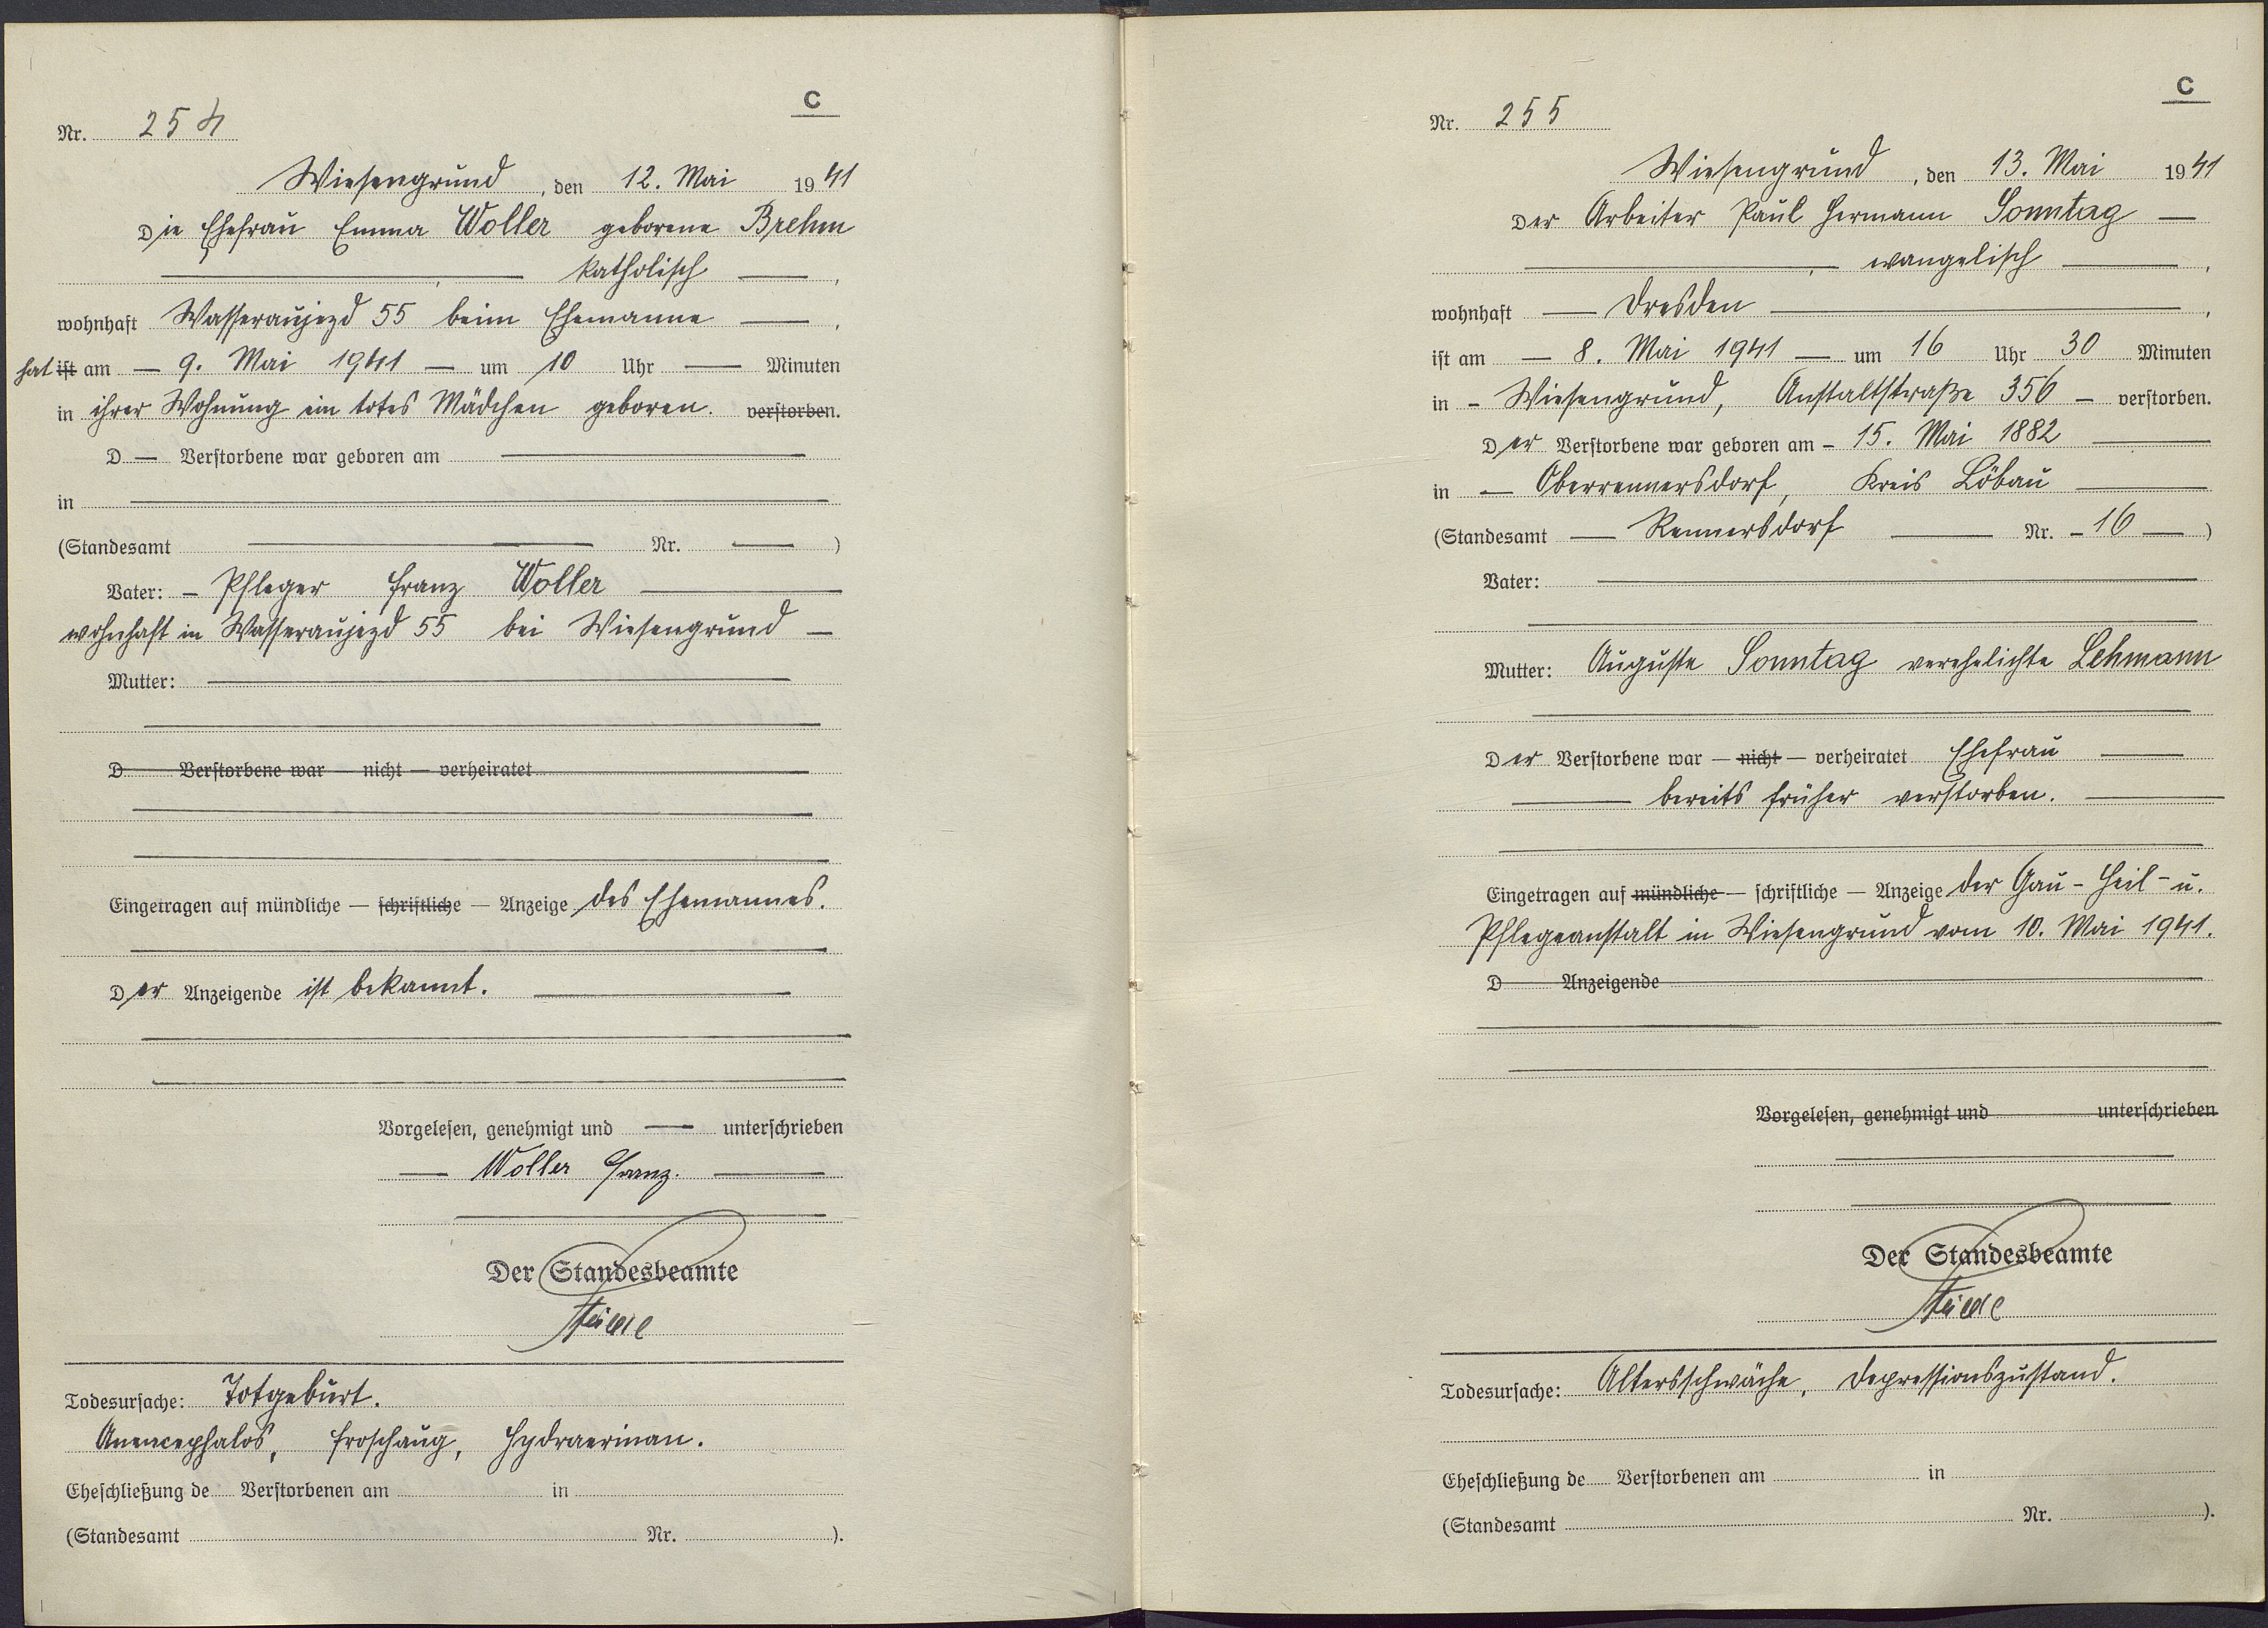 C
Nr. 254
Wiesengrund, den 12. Mai 1941
Die Ehefrau Emma Woller geborene Brehm
katholisch
wohnhaft Wasseraujezd 55 beim Ehemanne
hat ist am 9. Mai 1941 um 10 Uhr Minuten
in ihrer Wohnung ein totes Mädchen geboren. verstorben.
D Verstorbene war geboren am
in
(Standesamt Nr. )
Vater: Pfleger Franz Woller
wohnhaft in Wasseraujezd 55 bei Wiesengrund
Mutter:
D Verstorbene war — nicht — verheiratet
Eingetragen auf mündliche — schriftliche — Anzeige des Ehemannes.
Der Anzeigende ist bekannt.
Vorgelesen, genehmigt und unterschrieben
Woller Franz.
Der Standesbeamte
Todesursache: Totgeburt.
Anencephalos, Hydramnion.
Eheschließung de Verstorbenen am in
(Standesamt Nr. ).
C
Nr. 255
Wiesengrund, den 13. Mai 1941
Der Arbeiter Paul Hermann Sonntag
evangelisch
wohnhaft Dresden
ist am 8. Mai 1941 um 16 Uhr 30 Minuten
in Wiesengrund, Anstaltstraße 356 verstorben.
Der Verstorbene war geboren am 15. Mai 1882
in Oberrennersdorf, Kreis Löbau
(Standesamt Rennersdorf Nr. 16 )
Vater:
Mutter: Auguste Sonntag verehelichte Lehmann
Der Verstorbene war — nicht — verheiratet Ehefrau
bereits früher verstorben.
Eingetragen auf mündliche — schriftliche — Anzeige der Gau-Heil- u.
Pflegeanstalt in Wiesengrund vom 10. Mai 1941.
D Anzeigende
Vorgelesen, genehmigt und unterschrieben
Der Standesbeamte
Todesursache: Altersschwäche, Depressionszustand.
Eheschließung de Verstorbenen am in
(Standesamt Nr. ).